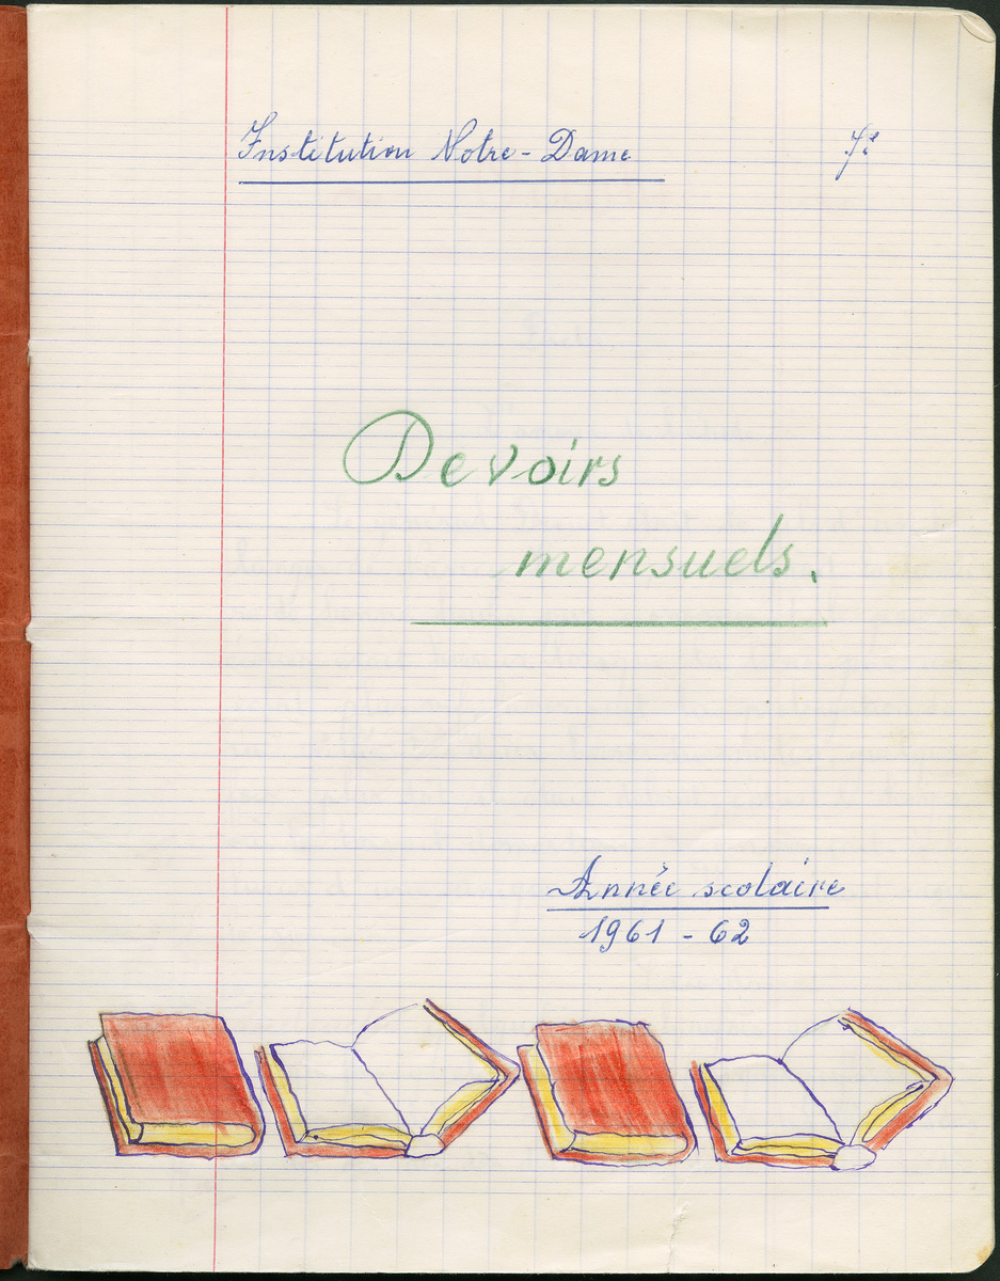 Institution Notre-Dame 7e
Devoirs
mensuels.
Année scolaire
1961 - 62